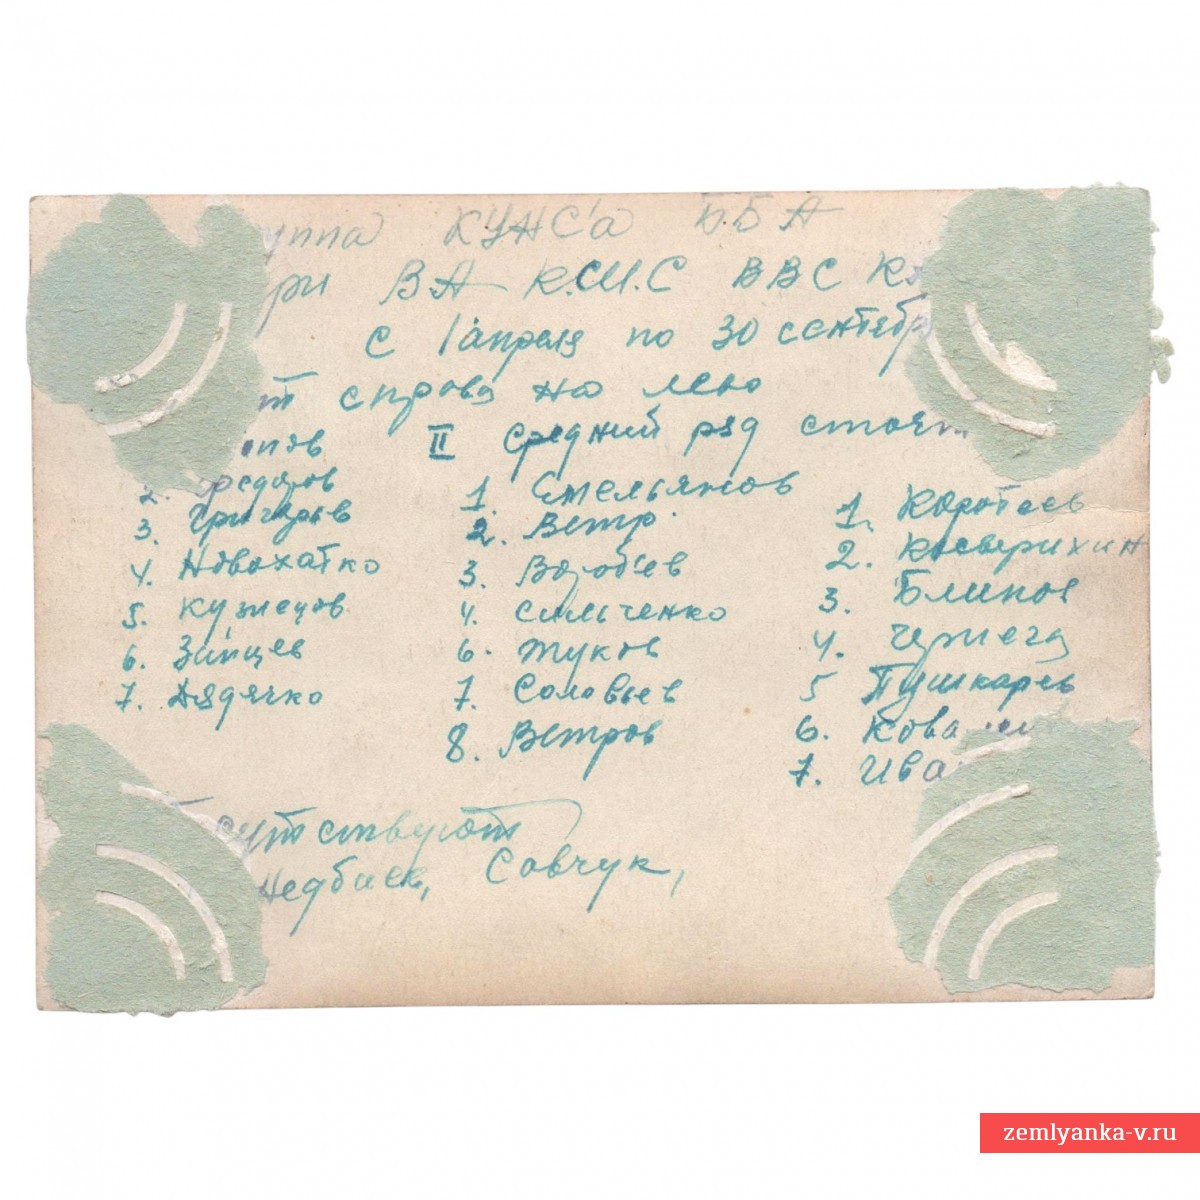 КУНС'а ББА
ВА К.Ш.С ВВС
с 1 апреля по 30 сентябр
справа на лево
II средний ряд стоят
2. Федоров
3. Григорьев
4. Новохатко
5. Кузнецов
6. Зайцев
7. Дядячко
1. Емельянов
2. Ветр.
3. Воробъев
4. Сильченко
6. Жуков
7. Соловьев
8. Ветров
1. Коротеев
2. Каверихин
3. Блинов
4. Чернега
5 Пушкарев
6.
7.
Савчук,
zemlyanka-v.ru